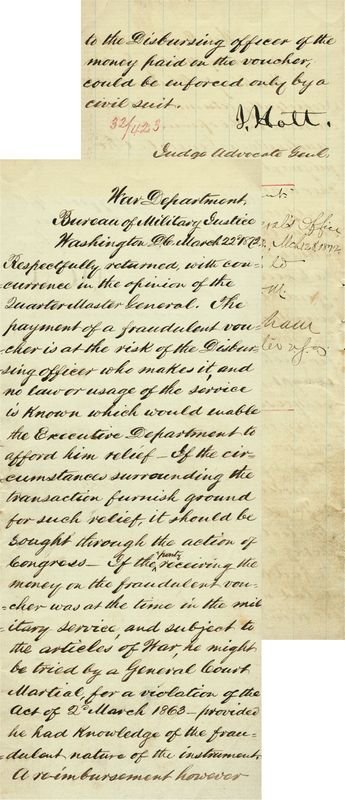 War Department,
Bureau of Military Justice
Washington D.C. March 22d 1872.
Respectfully returned, with con-
currence in the opinion of the
Quarter Master General. The
payment of a fraudulent vou-
cher is at the risk of the Disbur-
sing officer who makes it, and
no law or usage of the service
is known which would enable
the Executive Department to
afford him relief - If the cir-
cumstances surrounding the
transaction furnish ground
for such relief, it should be
sought through the action of
Congress - If the party receiving the
money on the fraudulent vou-
cher was at the time in the mil-
itary service, and subject to
the articles of War, he might
be tried by a General Court
Martial, for a violation of the
Act of 2d March 1863 - provided
he had knowledge of the frau-
dulent nature of the instrument.
A re-imbursement however
to the Disbursing officer of the
money paid on the voucher,
could be enforced only by a
civil suit.
J. Holt.
32/423
Judge Advocate Genl.